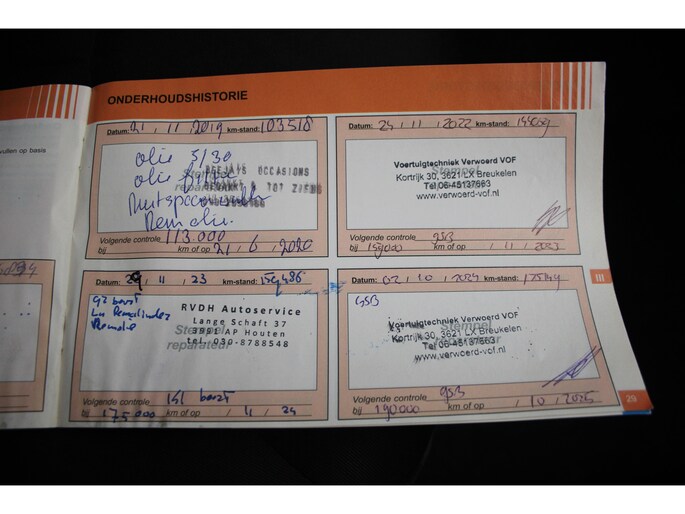 vullen op basis
ONDERHOUDSHISTORIE
Datum: 21 / 11 / 2019 km-stand: 103518
olie 5/30
olie filter
Stempel
reparateur
DEEJAYS OCCASIONS
BEDANKT & TOT ZIENS
Remolie.
Volgende controle
bij 113.000 km of op 21 / 6 / 2020
Datum: 24 / 11 / 2022 km-stand:
Stempel
Voertuigtechniek Verwoerd VOF
Kortrijk 30, 3621 LX Breukelen
Tel 06-45137663
www.verwoerd-vof.nl
Volgende controle GSB
bij 159000 km of op / 11 / 2023
Datum: / 4 / 23 km-stand: 159486
Remolie
Stempel
reparateur
RVDH Autoservice
Lange Schaft 37
3991 AP Houten
tel. 030-8788548
Volgende controle
bij 175000 km of op / 4 / 24
Datum: 02 / 10 / 2024 km-stand:
GSB
Stempel
Voertuigtechniek Verwoerd VOF
Kortrijk 30, 3621 LX Breukelen
Tel 06-45137663
www.verwoerd-vof.nl
Volgende controle GSB
bij 190000 km of op / 10 / 2025
III
29